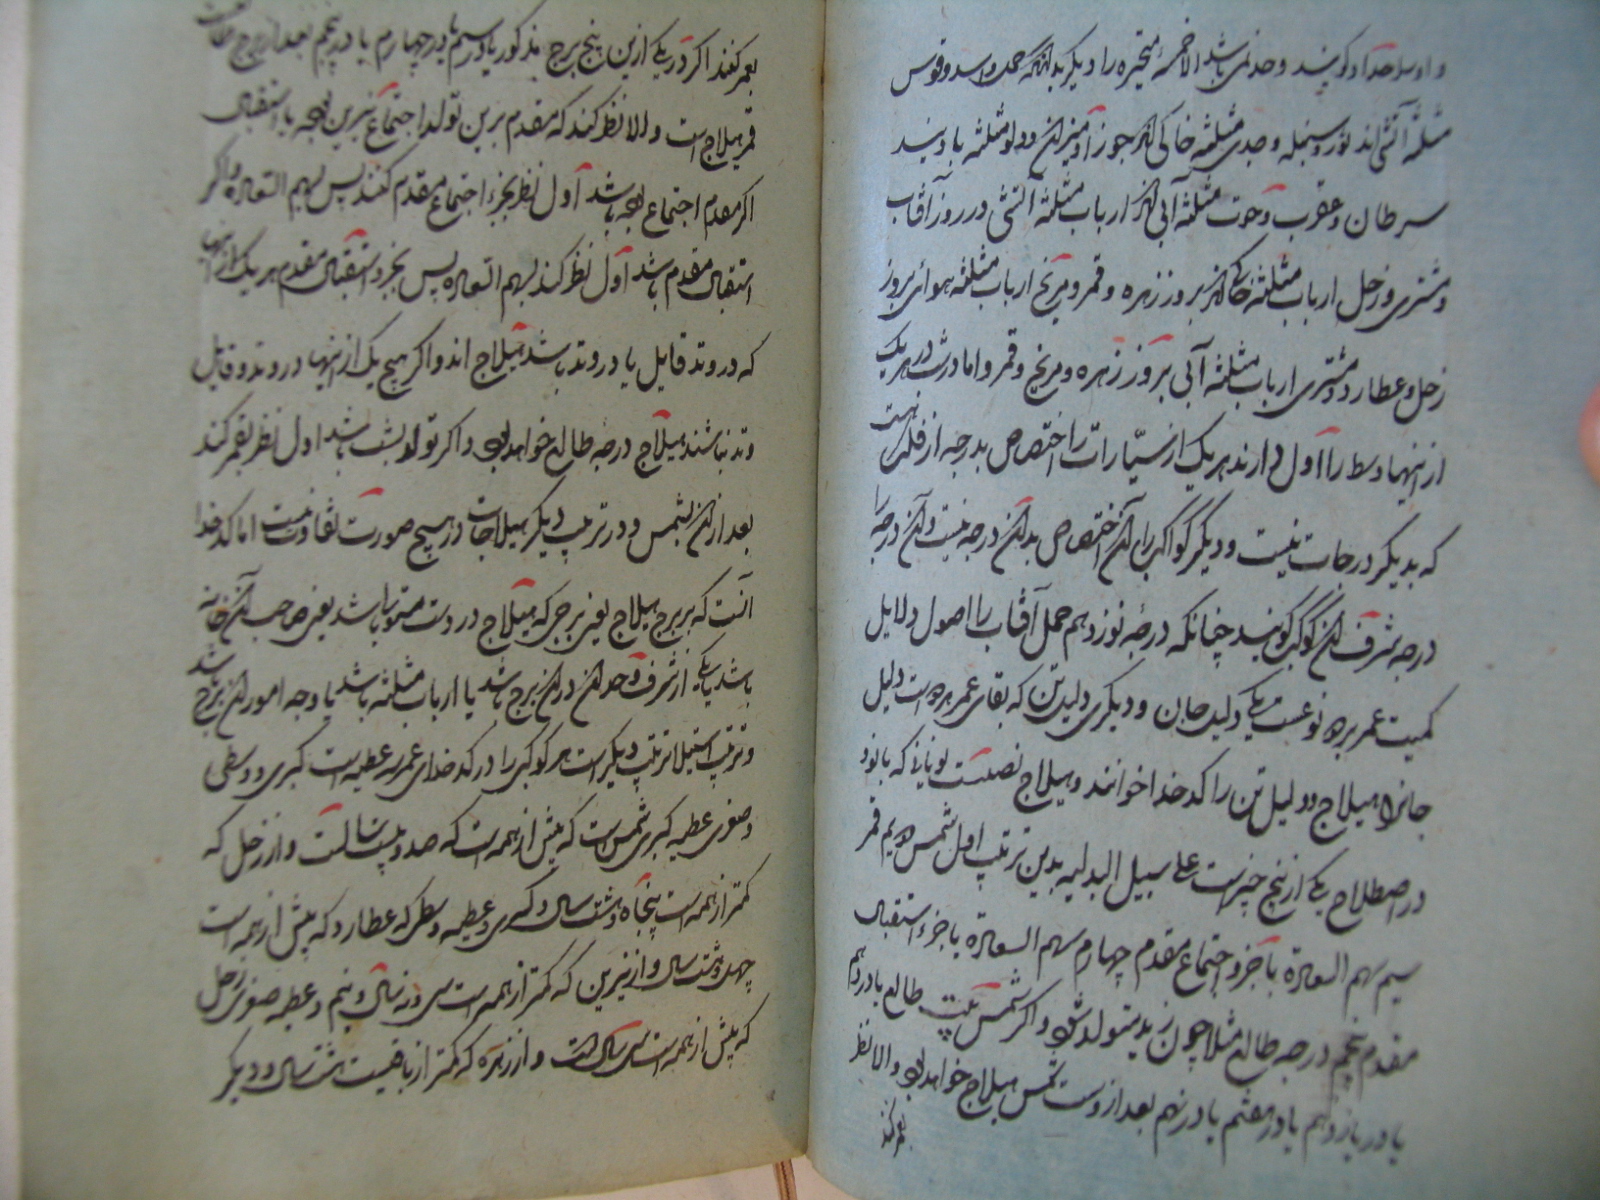 و اوسط حدا و کویند و حد نمی باشد الا خمسهٔ متحیره را دیگر بدانکه حمل و اسد و قوس
مثلثهٔ آتشی اند ثور و سنبله و جدی مثلثهٔ خاکی اند جوزا و میزان و دلو مثلثهٔ بادیند
سرطان و عقرب و حوت مثلثهٔ آبی اند ارباب مثلثهٔ آتشی در روز آفتاب
و مشتری و زحل ارباب مثلثهٔ خاکی اند بروز زهره و قمر و مریخ ارباب مثلثه هوائی بروز
زحل و عطارد و مشتری ارباب مثلثهٔ آبی بروز زهره و مریخ و قمر و اما در شب هر یک
از اینها وسط را اول دارند هر یک از سیارات را اختصاص بدرجه از فلک هست
که بدیگر درجات نیست و دیگر کواکب را آن اختصاص بدان درجه نیست و آن درجه را
درجه شرف آن کوکب کویند چنانکه درجهٔ نوزدهم حمل آفتاب را اصول دلایل
کمیت عمر بر دو نوعست یکی دلیل جان و دیگری دلیل تن که بقای عمر بهر دو است دلیل
جانرا هیلاج و دلیل تن را کدخدا خوانند و هیلاج
در اصطلاح یکی از پنج چیز است علی سبیل البدلیه بدین ترتیب اول شمس دویم قمر
سیم سهم السعادة یا جزو اجتماع مقدم چهارم سهم السعادة یا جزء استقبال
مقدم پنجم درجه طالع مثلا چون زید متولد شود و اکر شمس در بیت طالع یا در دهم
یا در یازدهم یا در هفتم یا در نهم بعد از وست شمس هیلاج خواهد بود و الا نظر
بقمر کنند
بقمر کنند اکر در یکی ازین پنج برج مذکور یا در سیم یا در چهارم یا در پنجم بعد از برج طالعست
قمر هیلاج است و الا نظر کنند که مقدم برین تولد اجتماع نیرین بوده یا استقبال
اکر مقدم اجتماع بوده باشد اول نظر بجزء اجتماع مقدم کنند پس بسهم السعادة و اکر
استقبال مقدم باشد اول نظر کنند بسهم السعادة پس بجزو استقبال مقدم هر یک از اینها
که در وتد قایل یا در وتد باشد هیلاج اند و اکر هیچ یک از اینها در وتد و قایل
وتد نباشند هیلاج درجهٔ طالع خواهد بود و اکر تولد بشب باشد اول نظر بقمر کنند
بعد از آن بشمس و در ترتیب دیکر هیلاجات در هیچ صورت تفاوت نیست اما کدخدا
آنست که بر برج هیلاج یعنی برجی که هیلاج دروست مستولی باشد یعنی صاحب آن خانه
باشد یا یکی از شرف و حد آن در آن برج باشد یا ارباب مثلثه باشد یا وجه امور آن برج باشد
و ترتیب استیلا ترتیب دیکر است هر کوکبی را در کدخدای عمر سه عطیه است کبری و وسطی
و صغری عطیه کبری شمس است که بیش از همه است که صد و بیست سالست و از زحل که
کمتر از همه است پنجاه و هشت سال و کسری و عطیه وسطی که عطارد که بیش از همه است
چهل و هشت سال و از نیرین که کمتر از همه است سی و نه سال و نیم و عطیه صغری زحل
که بیش از همه است سی سال است و از زهره که کمتر از باقیست هشت سال و دیکر